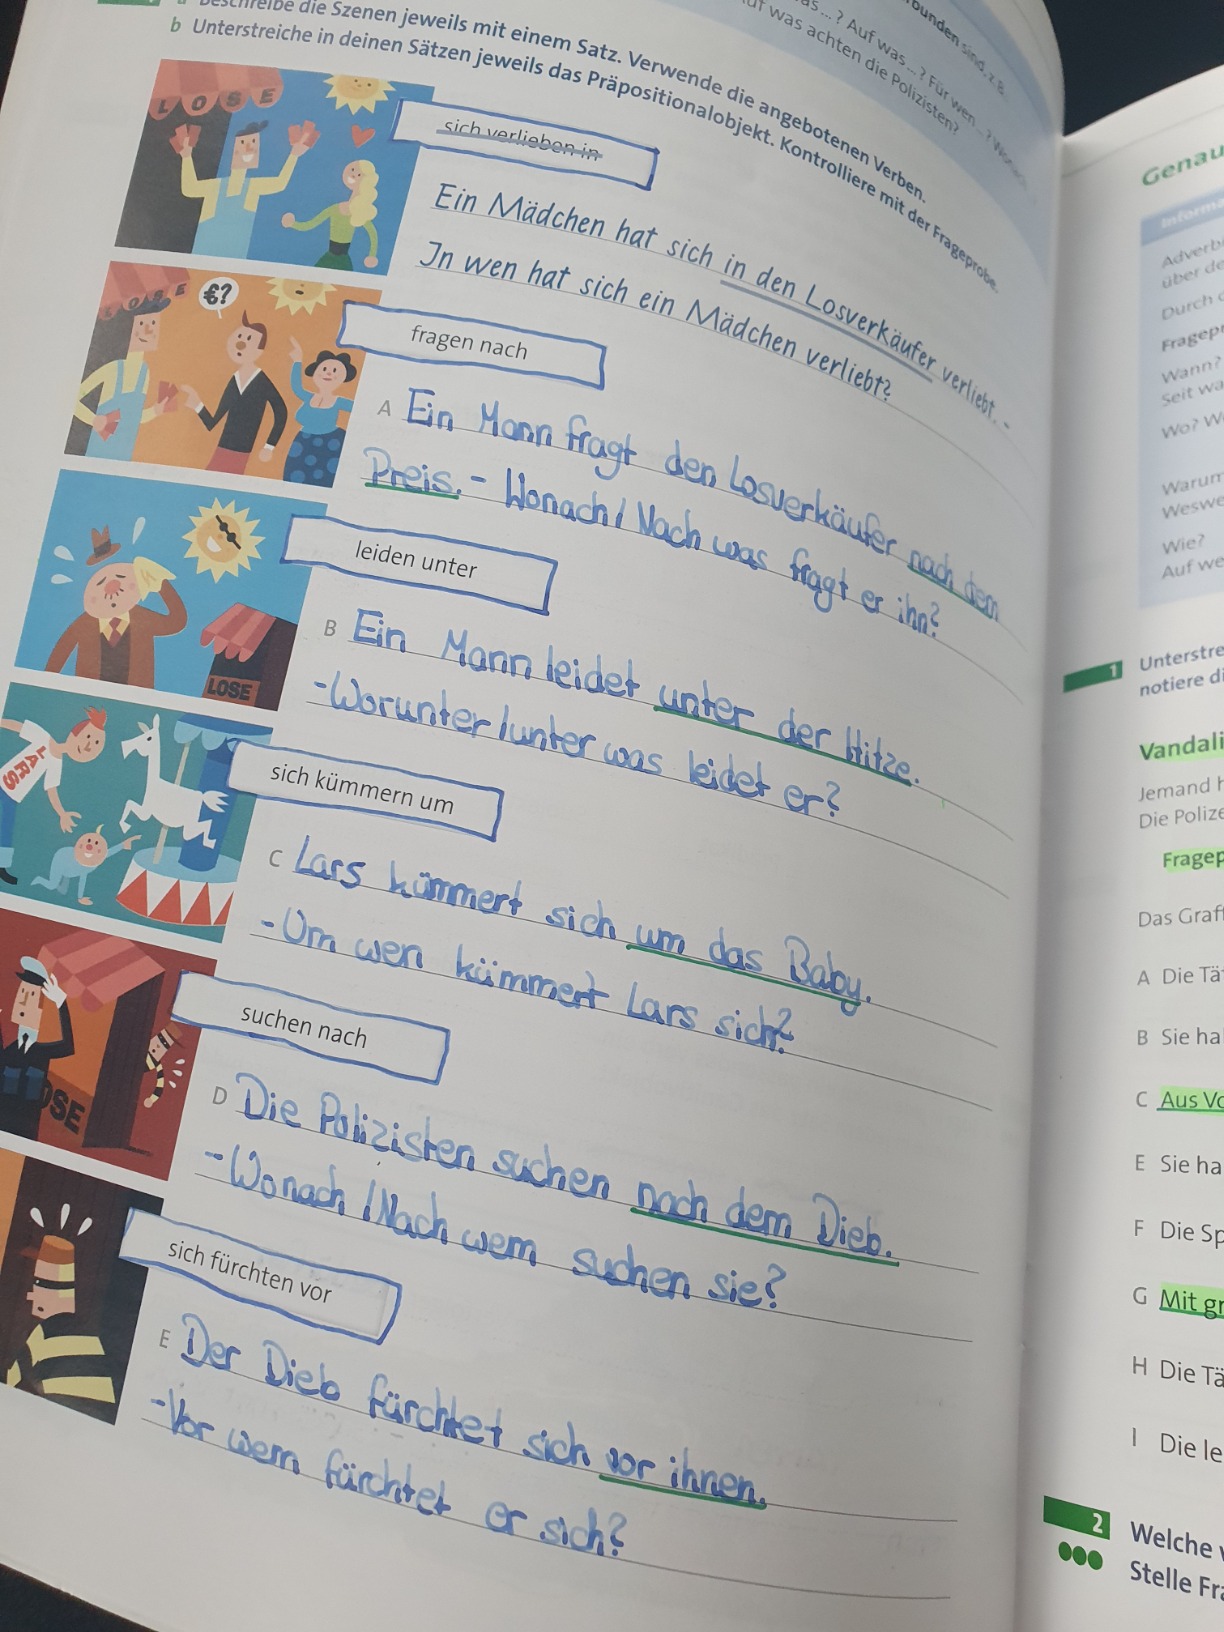 a Beschreibe die Szenen jeweils mit einem Satz. Verwende die angebotenen Verben.
b Unterstreiche in deinen Sätzen jeweils das Präpositionalobjekt. Kontrolliere mit der Frageprobe.
bunden sind, z.B.
as ... ? Auf was ... ? Für wen ... ?
uf was achten die Polizisten?
LOSE
sich verlieben in
Ein Mädchen hat sich in den Losverkäufer verliebt. -
In wen hat sich ein Mädchen verliebt?
LOSE
€?
fragen nach
A Ein Mann fragt den Losverkäufer nach dem
Preis. - Wonach / Nach was fragt er ihn?
leiden unter
LOSE
B Ein Mann leidet unter der Hitze.
- Worunter / unter was leidet er?
LARS
sich kümmern um
C Lars kümmert sich um das Baby.
- Um wen kümmert Lars sich?
suchen nach
OSE
D Die Polizisten suchen nach dem Dieb.
- Wonach / Nach wem suchen sie?
sich fürchten vor
E Der Dieb fürchtet sich vor ihnen.
- Vor wem fürchtet er sich?
Genau
Informa
Adverb
über de
Durch
Fragep
Wann?
Seit wa
Wo? W
Warum
Weswe
Wie?
Auf we
1 Unterstre
notiere di
Vandali
Jemand h
Die Polize
Fragep
Das Graff
A Die Tä
B Sie ha
C Aus Vo
E Sie ha
F Die Sp
G Mit gr
H Die Tä
I Die le
2 Welche
Stelle Fra